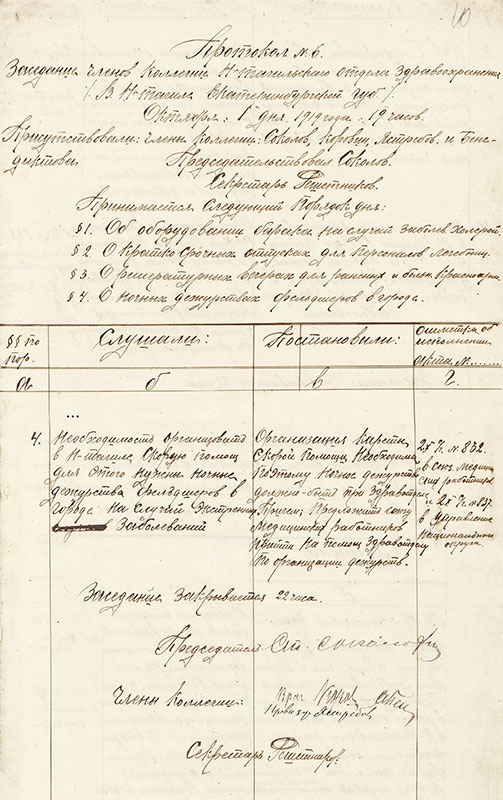 10
Протокол № 6.
Заседание членов Коллегии Н-тагильского отдела Здравоохранения
/ В Н-тагиле Екатеринбургской губ /
Октября: 1 дня 1919 года: 19 часов.
Присутствовали: члены коллегии: Соколов, Коровин, Ястребов, и Бене-
диктова. Председательствовал Соколов.
Секретарь Решетников.
Принимается следующий порядок дня:
§ 1. Об оборудовании барака на случай заболев. холерой.
§ 2 О Кратко срочных отпусках для персонала лечебниц.
§ 3. О литературных вечерах для раненых и больн. красноарм.
§ 4. О ночных дежурствах фельдшеров в города.
§§ по
пор.
Слушали:
Постановили:
отметка об
исполнении
акта №.......
а
б
в
г.
...
4. Необходимость организовать
в Н-тагиле Скорую помощь
для этого нужны ночные
дежурства фельдшеров в
Города на случай экстренных
Заболеваний
Организация кареты
Скорой помощи необходима
Поэтому ночное дежурство
должно быть при Здравотделе
Просим: Предложить союзу
Медицинских работников
прийти на помощь Здравотделу
по организации дежурств.
2X г. № 832.
в союз медицин
ских работников
2X г. № 837.
в Управление
Национального
округа.
Заседание Закрывается 22 часа.
Председатель
Члены Коллегии: Врач
Ястребов
Секретарь Решетников.